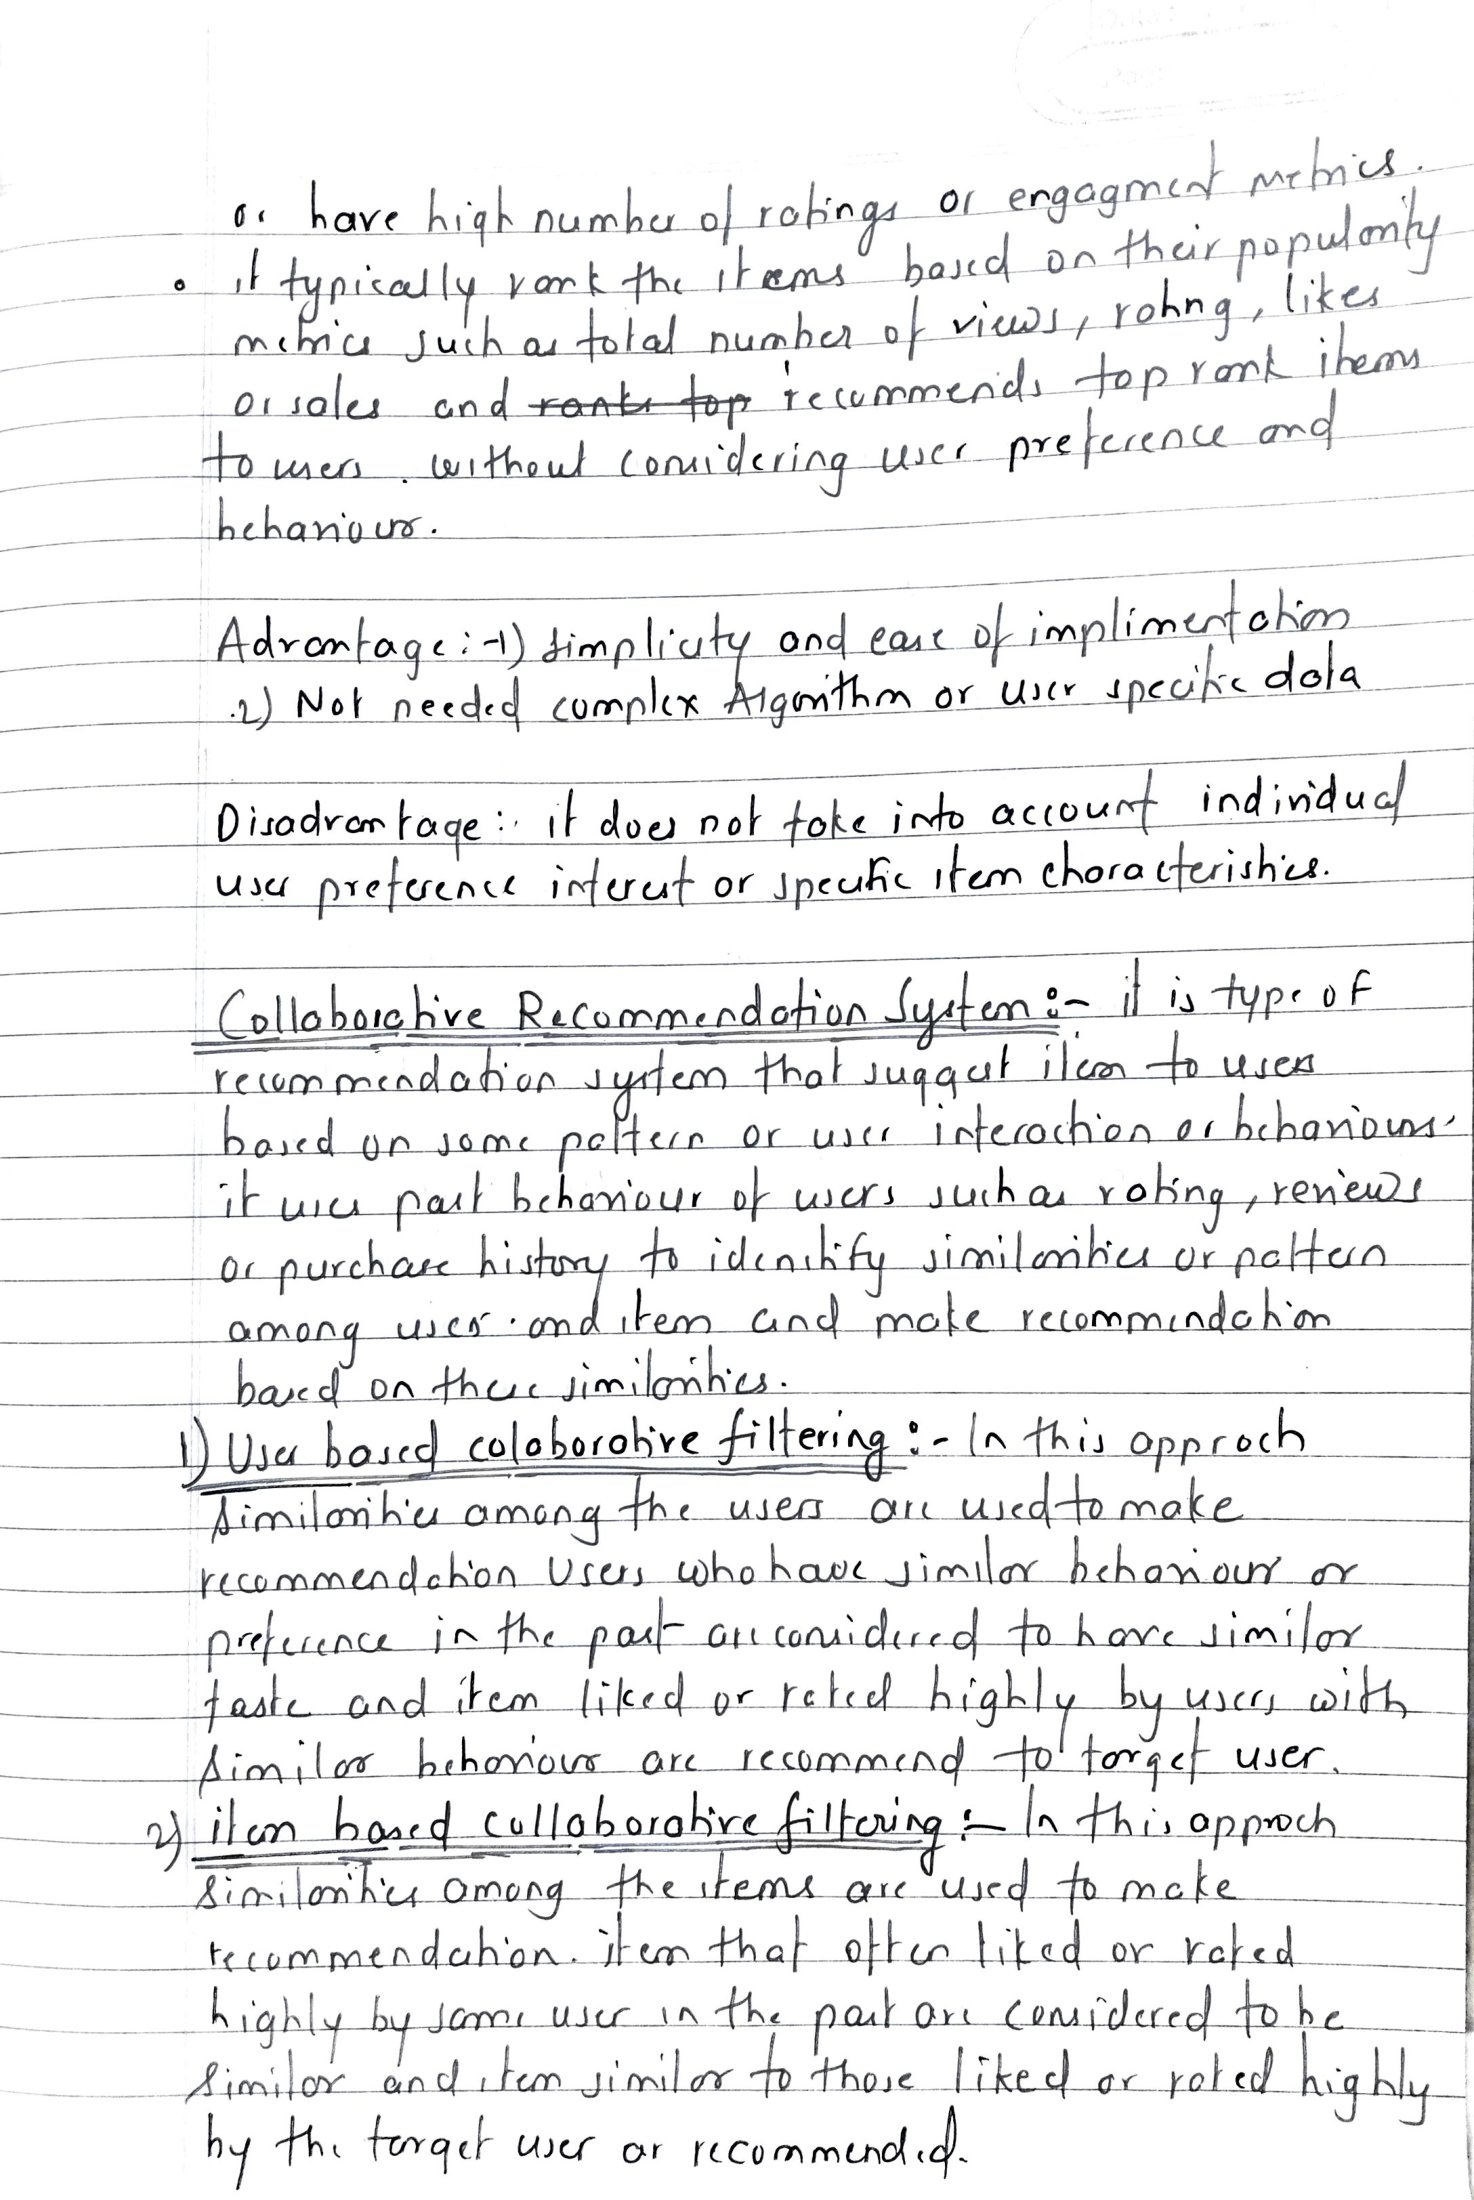 or have high number of ratings or engagment metrics.
• it typically rank the items based on their popularity
metrics such as total number of views, rating, likes
or sales and ranks top recommends top rank items
to users. without considering user preference and
behaviour.
Advantage :- 1) Simplicity and ease of implimentation
2) Not needed complex Algorithm or user specific data
Disadvantage :- it does not take into account individual
user preference interest or specific item characteristics.
Collaborative Recommendation System :- it is type of
recommendation system that suggest item to users
based on some pattern or user interaction or behaviours.
it uses past behaviour of users such as rating, reviews
or purchase history to identify similarities or pattern
among user and item and make recommendation
based on these similarities.
1) User based colaborative filtering :- In this approch
Similarities among the users are used to make
recommendation Users who have similar behaviour or
preference in the past are considered to have similar
taste and item liked or rated highly by users with
similar behaviour are recommend to target user.
2) item based collaborative filtering :- In this approch
similarities among the items are used to make
recommendation. item that often liked or rated
highly by same user in the past are considered to be
similar and item similar to those liked or rated highly
by the target user ar recommended.